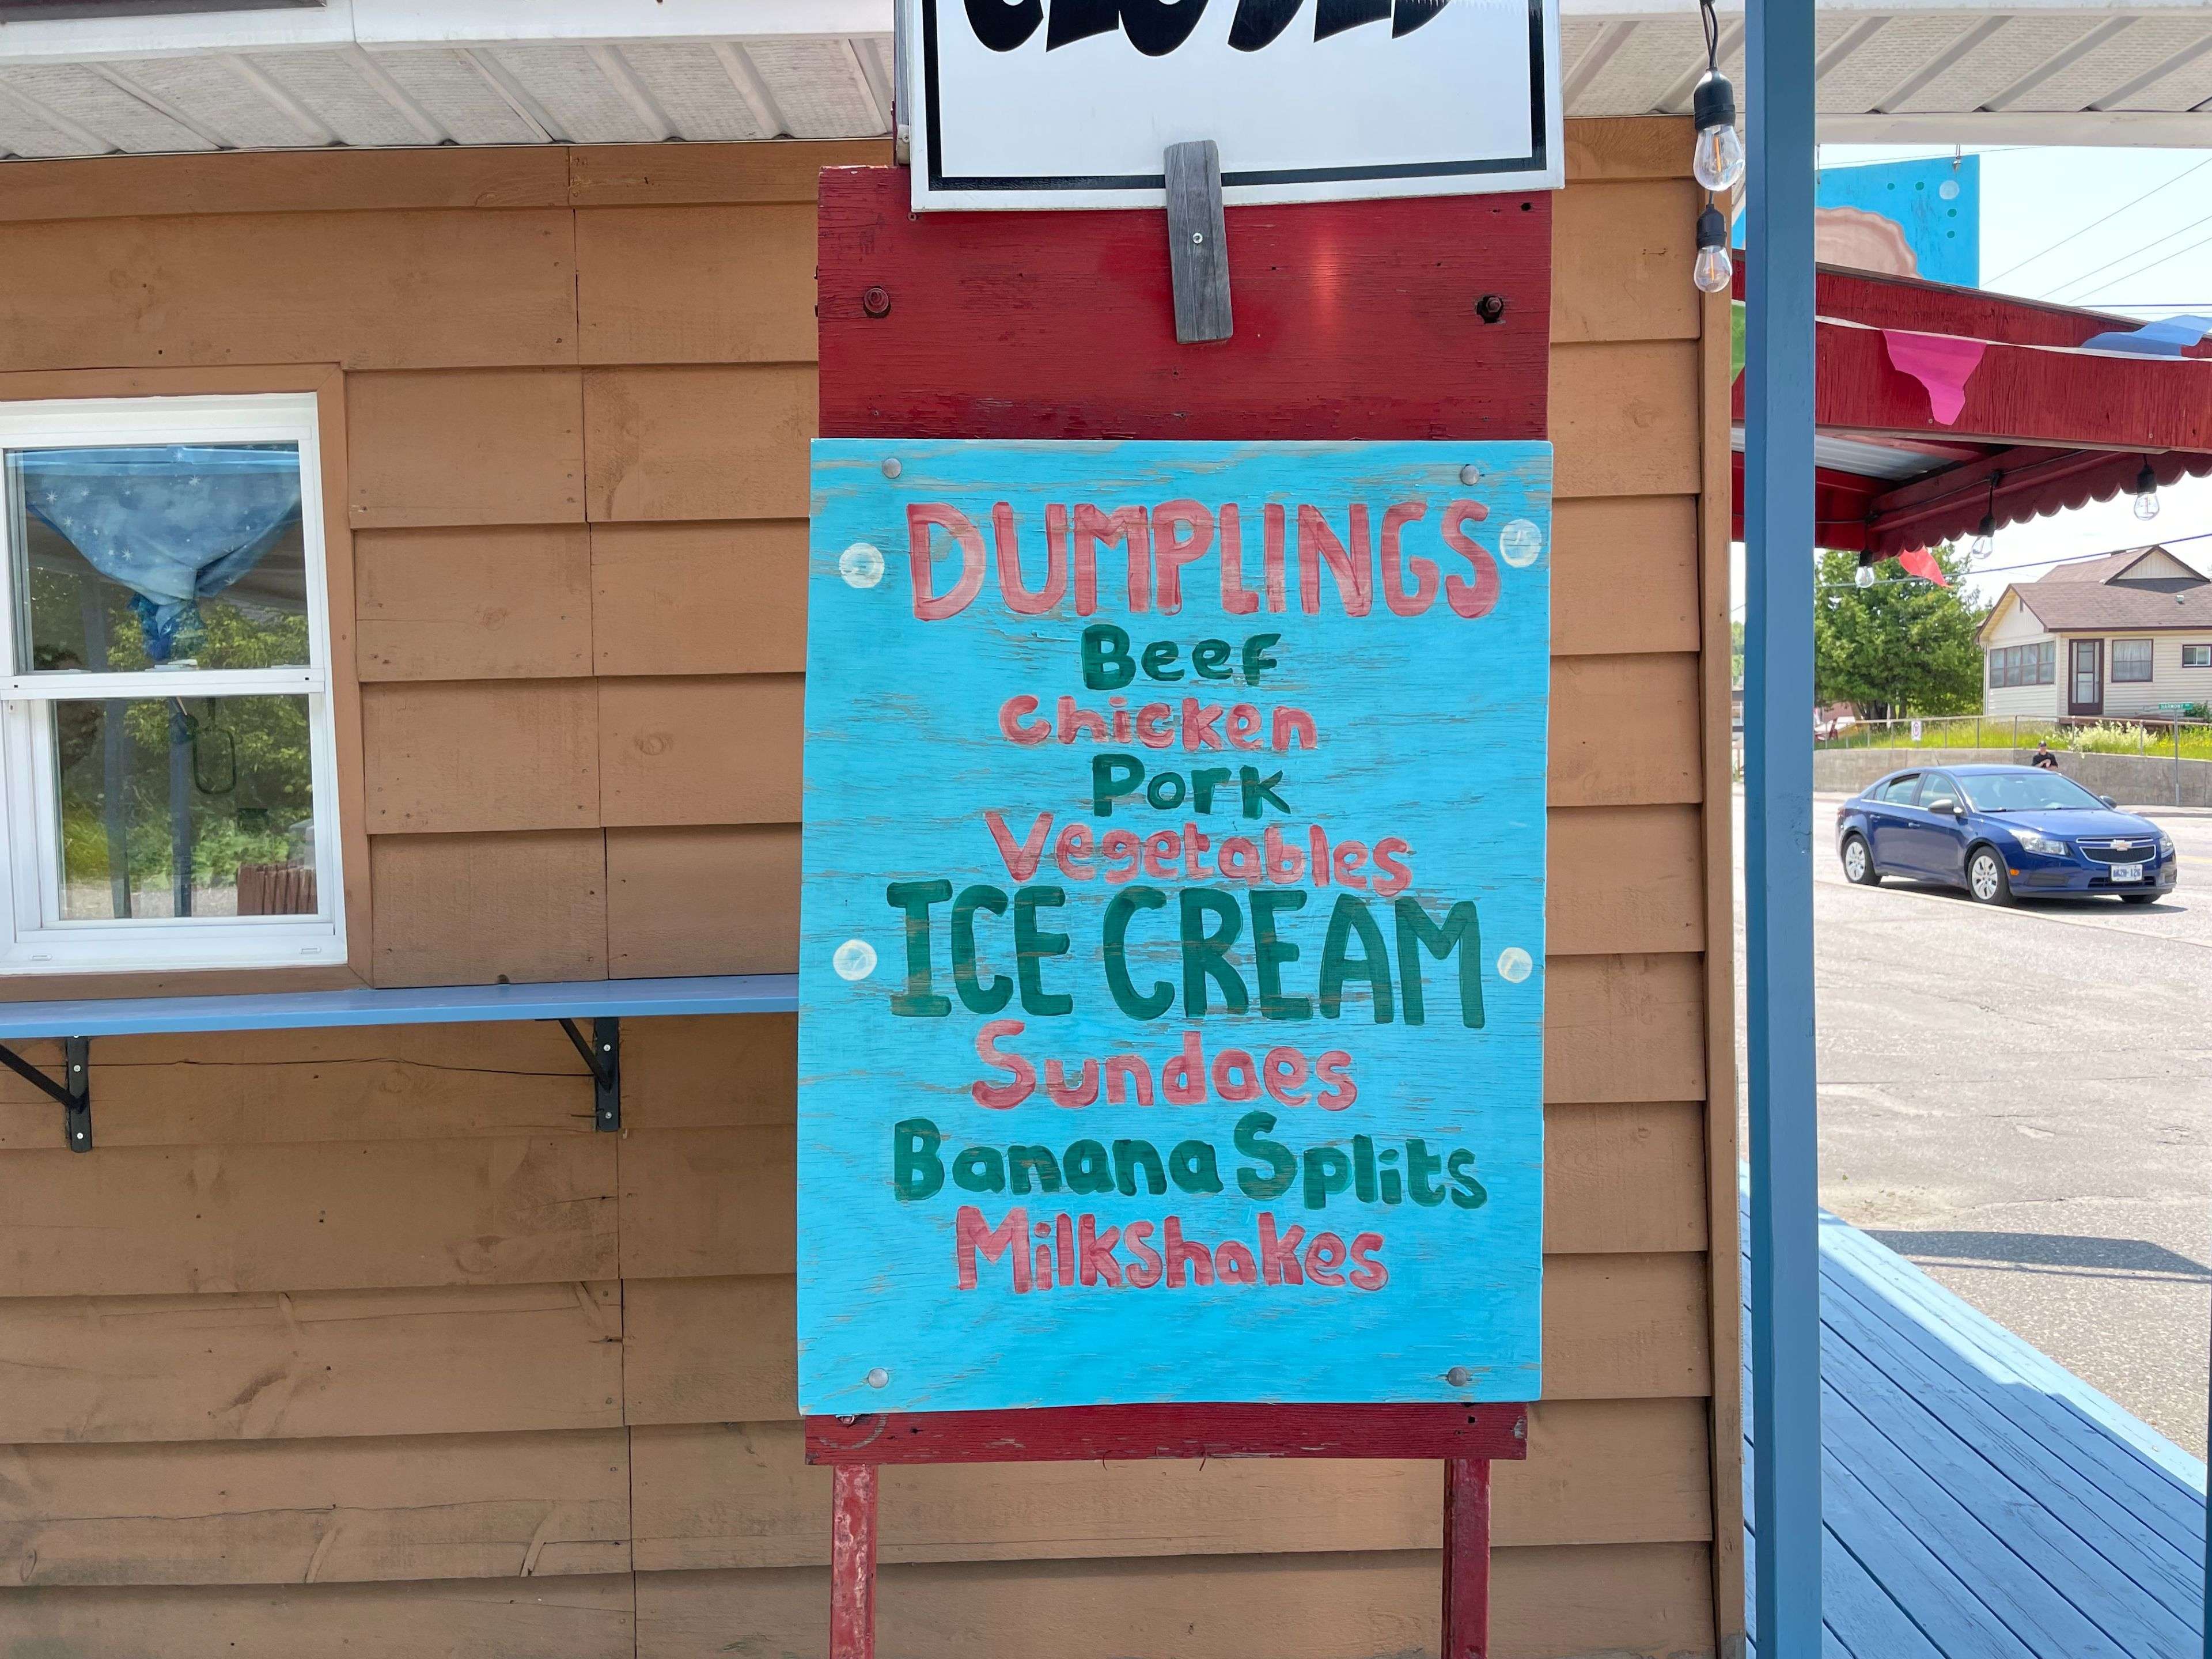 CLOSED
DUMPLINGS
Beef
Chicken
Pork
Vegetables
ICE CREAM
Sundaes
Banana Splits
Milkshakes